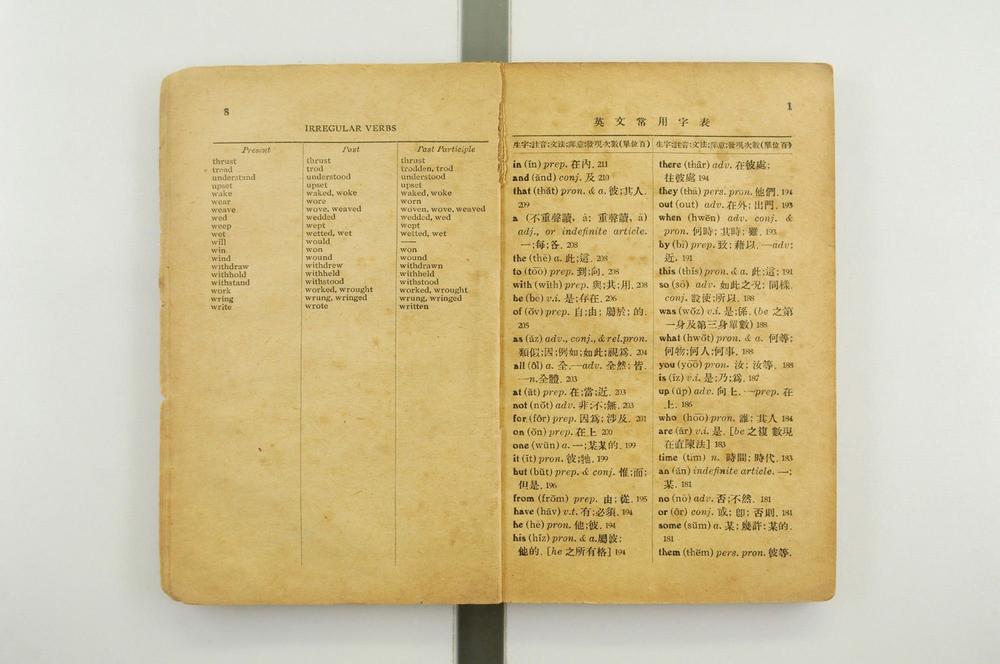 8
IRREGULAR VERBS
Present Past Past Participle
thrust thrust thrust
tread trod trodden, trod
understand understood understood
upset upset upset
wake waked, woke waked, woke
wear wore worn
weave wove, weaved woven, wove, weaved
wed wedded wedded, wed
weep wept wept
wet wetted, wet wetted, wet
will would ——
win won won
wind wound wound
withdraw withdrew withdrawn
withhold withheld withheld
withstand withstood withstood
work worked, wrought worked, wrought
wring wrung, wringed wrung, wringed
write wrote written
1
英文常用字表
生字;註音;文法;譯意;發現次數(單位百)
in (ĭn) prep. 在內. 211
and (ănd) conj. 及 210
that (thăt) pron. & a. 彼;其人.
209
a (不重聲讀, ȧ; 重聲讀, ā)
adj., or indefinite article.
一;每;各. 208
the (thē) a. 此;這. 208
to (to͞o) prep. 到;向. 208
with (wĭth) prep. 與;其;用. 208
be (bē) v.i. 是;存在. 206
of (ŏv) prep. 自;由; 屬於; 的.
205
as (ăz) adv., conj., & rel.pron.
類似;因;例如;如此;視爲. 204
all (ôl) a. 全.—adv. 全然; 皆.
—n.全體. 203
at (ăt) prep. 在;當;近. 203
not (nŏt) adv. 非;不;無. 203
for (fôr) prep. 因爲; 涉及. 201
on (ŏn) prep. 在上 200
one (wŭn) a. 一;某某的. 199
it (ĭt) pron. 彼;牠. 199
but (bŭt) prep. & conj. 惟;而;
但是. 196
from (frŏm) prep. 由; 從. 195
have (hăv) v.t. 有;必須. 194
he (hē) pron. 他;彼. 194
his (hĭz) pron. & a.屬彼;
他的. [he 之所有格] 194
生字;註音;文法;譯意;發現次數(單位百)
there (thâr) adv. 在彼處;
往彼處 194
they (thā) pers. pron. 他們. 194
out (out) adv. 在外; 出門. 193
when (hwĕn) adv. conj. &
pron. 何時; 其時; 雖. 193
by (bī) prep. 致; 藉以. —adv;
近. 191
this (thĭs) pron. & a. 此; 這; 191
so (sō) adv. 如此之況; 同樣.
conj. 設使;所以. 188
was (wŏz) v.i. 是;係. (be 之第
一身及第三身單數) 188
what (hwŏt) pron. & a. 何等;
何物;何人;何事. 188
you (yo͞o) pron. 汝; 汝等. 188
is (ĭz) v.i. 是;乃;爲. 187
up (ŭp) adv. 向上. —prep. 在
上. 186
who (ho͞o) pron. 誰; 其人 184
are (är) v.i. 是. [be 之複數現
在直陳法] 183
time (tīm) n. 時間; 時代. 183
an (ăn) indefinite article. 一;
某. 181
no (nō) adv. 否;不然. 181
or (ôr) conj. 或; 卽; 否則. 181
some (sŭm) a. 某; 幾許; 某的.
181
them (thĕm) pers. pron. 彼等.